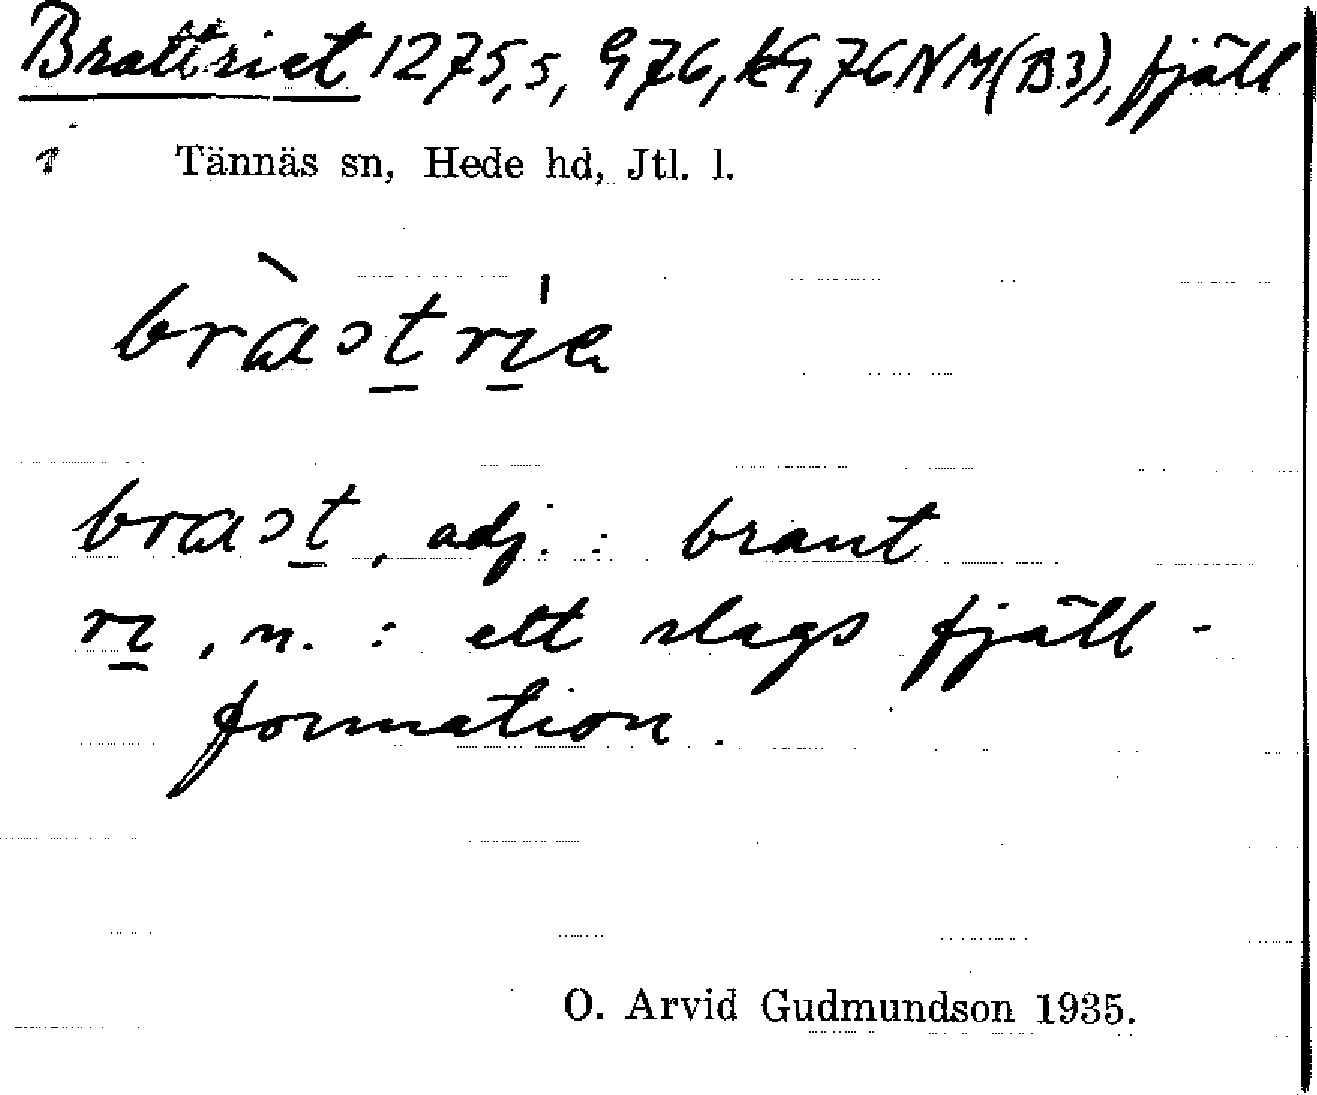 Brattriet 1275,5, G76, kG76NM(B3), fjäll
i Tännäs sn, Hede hd, Jtl. l.
bràɔt̲ri̲'e
braɔt̲, adj. : brant
ri̲, n. : ett slags fjäll-
formation.
O. Arvid Gudmundson 1935.